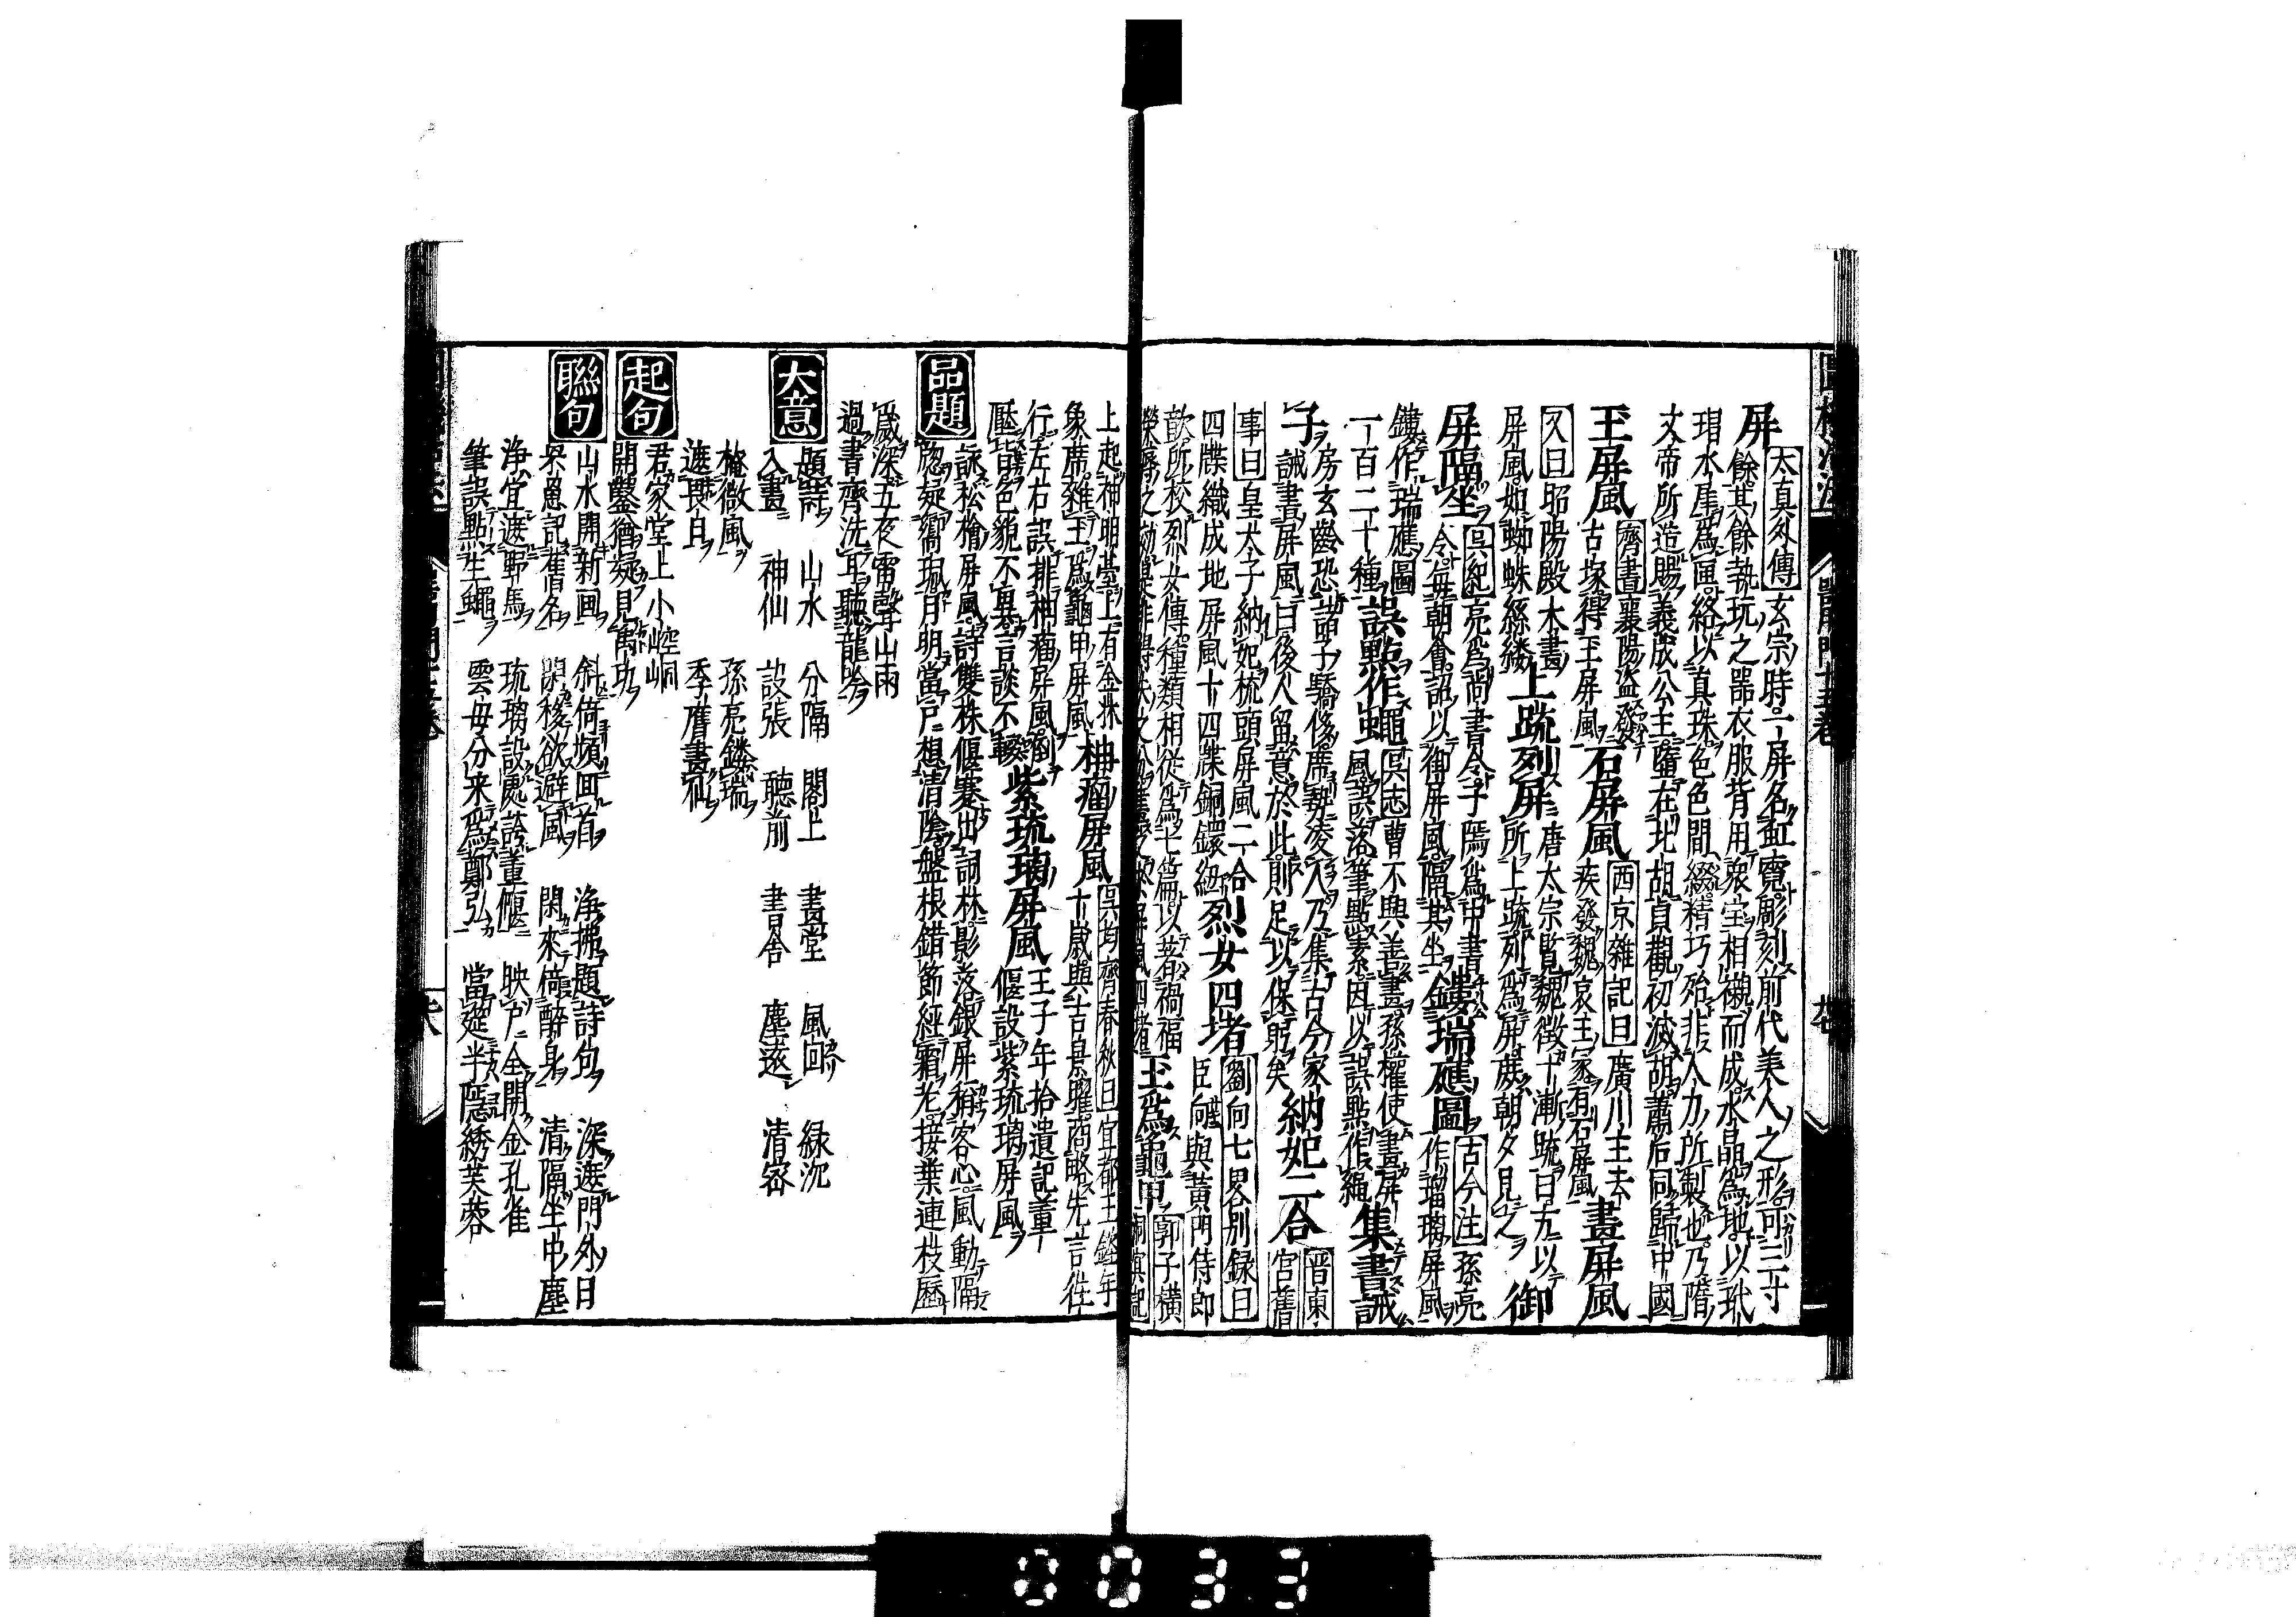 屏
太真外傳玄宗時一屏名虹霓彫刻前代美人之形可三寸
餘其餘執玩之器衣服皆用衆宝相襯而成水晶爲地以玳
瑁水犀爲匣絡以真珠色色間綴精巧殆非人力所製也乃隋
文帝所造賜義成公主隨在北胡貞觀初滅胡蕭后同歸中國
玉屏風 齊書襄陽盜發古塚得玉屏風 石屏風 西京雜記曰廣川王去疾發魏哀王冢有石屏風 畫屏風
又曰昭陽殿木畫屏風如蜘蛛絲縷 上疏列屏 唐太宗覧魏徴十漸疏曰方以所上疏列爲屏蔗朝夕見之 御
屏隔坐 呉紀亮爲尚書令子隲爲中書令毎朝會詔以御屏風隔其坐 鏤瑞應圖 古今注孫亮作瑠璃屏風
鏤作瑞應圖一百二十種 誤點作蠅 呉志曹不興善畫孫權使畫屏風誤落筆點素因以誤點作蠅 集書誡
子 房玄齡恐諸子驕侈席勢凌人乃集古今家誡書屏風曰後人留意於此則足以保躬矣 納妃二合 晋東宮舊
事曰皇大子納妃梳頭屏風二合四牒織成地屏風十四牒銅鐶紐 烈女四堵 劉向七畧別録曰臣向與黄門侍郎
歆所校烈女傳種類相從爲七篇以著禍福榮辱之 屏風四堵 玉爲龜甲 郭子横洞冥記
上起神明臺上有金牀象席雜玉爲龜甲屏風 柟瘤屏風 呉均齊春秋曰宜都王鏗年十歳與吉景曜商略先言徃
行左右誤排柟瘤屏風倒壓背色貌不異言談不輟 紫琉璃屏風 王子年拾遺記董偃設紫琉璃屏風
品題
詠松檜屏風詩雙株偃蹇出詞林影落銀屏稱客心風動隔
牕疑嚮珮月明當戸想清陰盤根錯節經霜老接葉連枝歴
歳深五夜雷聲山雨過書齊洗耳聽龍吟
大意
題詩 山水 分隔 閣上 書堂 風回 緑沈
入畫 神仙 設張 聽前 書舎 塵遠 清密
掩微風 孫亮鏤瑞
遮畏日 季膺畫仙
起句
君家堂上小崆峒
開鑿猶疑見禹功
聯句
山水開新画 斜倚頻回首 浄拂題詩句 深遮門外日
罘罳記舊名 閑移欲避風 閑來倚醉身 清隔坐中塵
浄宜遮野馬 琉璃設處誇董偃 映戸全開金孔雀
筆誤點生蠅 雲母分来爲鄭弘 當筵半隱綉芙蓉
0033